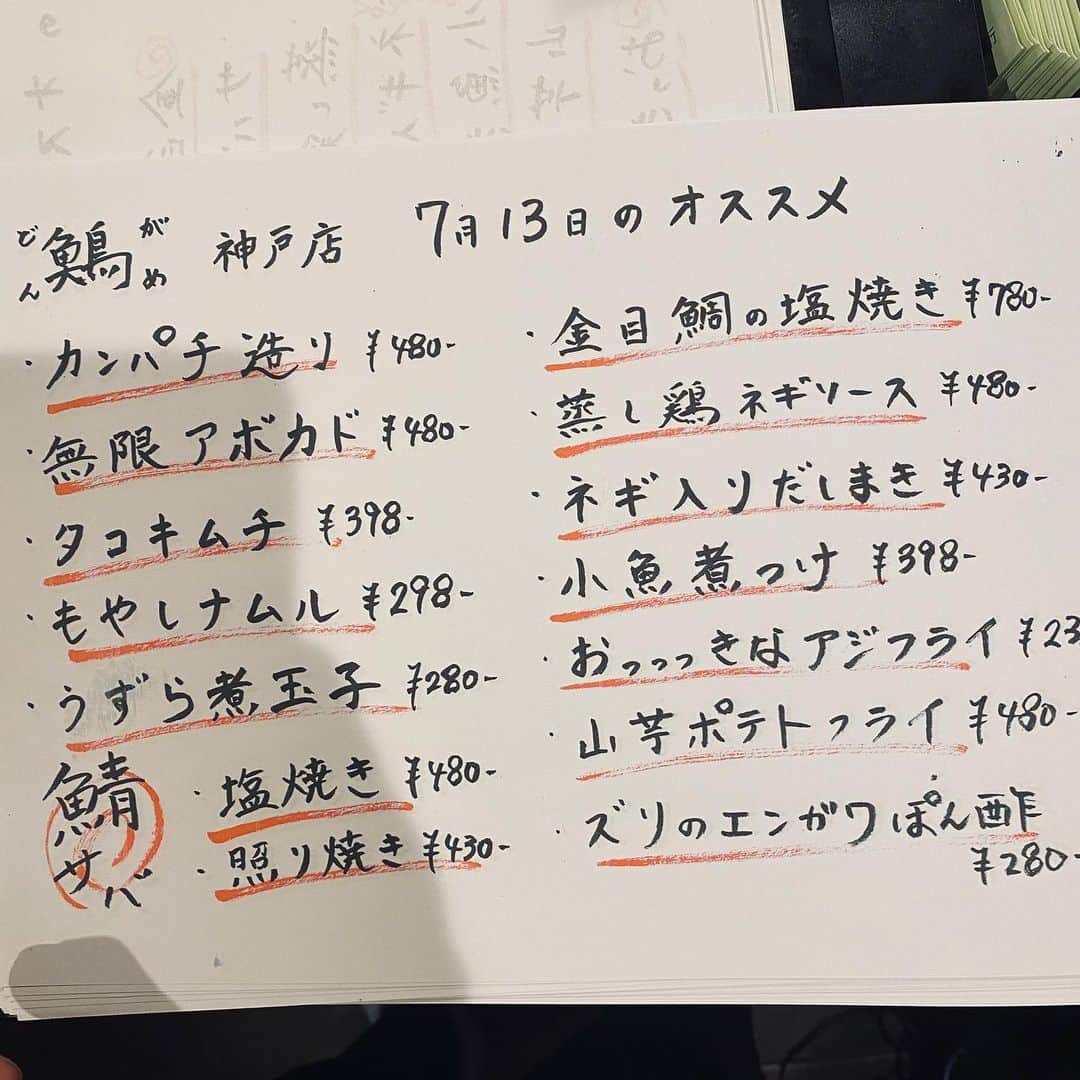 どんがめ 神戸店 7月13日のオススメ
・カンパチ造り ¥480-
・無限アボカド ¥480-
・タコキムチ ¥398-
・もやしナムル ¥298-
・うずら煮玉子 ¥280-
鯖サバ
・塩焼き ¥480-
・照り焼き ¥430-
・金目鯛の塩焼き ¥780-
・蒸し鶏ネギソース ¥480-
・ネギ入りだしまき ¥430-
・小魚煮つけ ¥398-
・おっっっきなアジフライ ¥23
・山芋ポテトフライ ¥480-
・ズリのエンガワぽん酢
¥280-